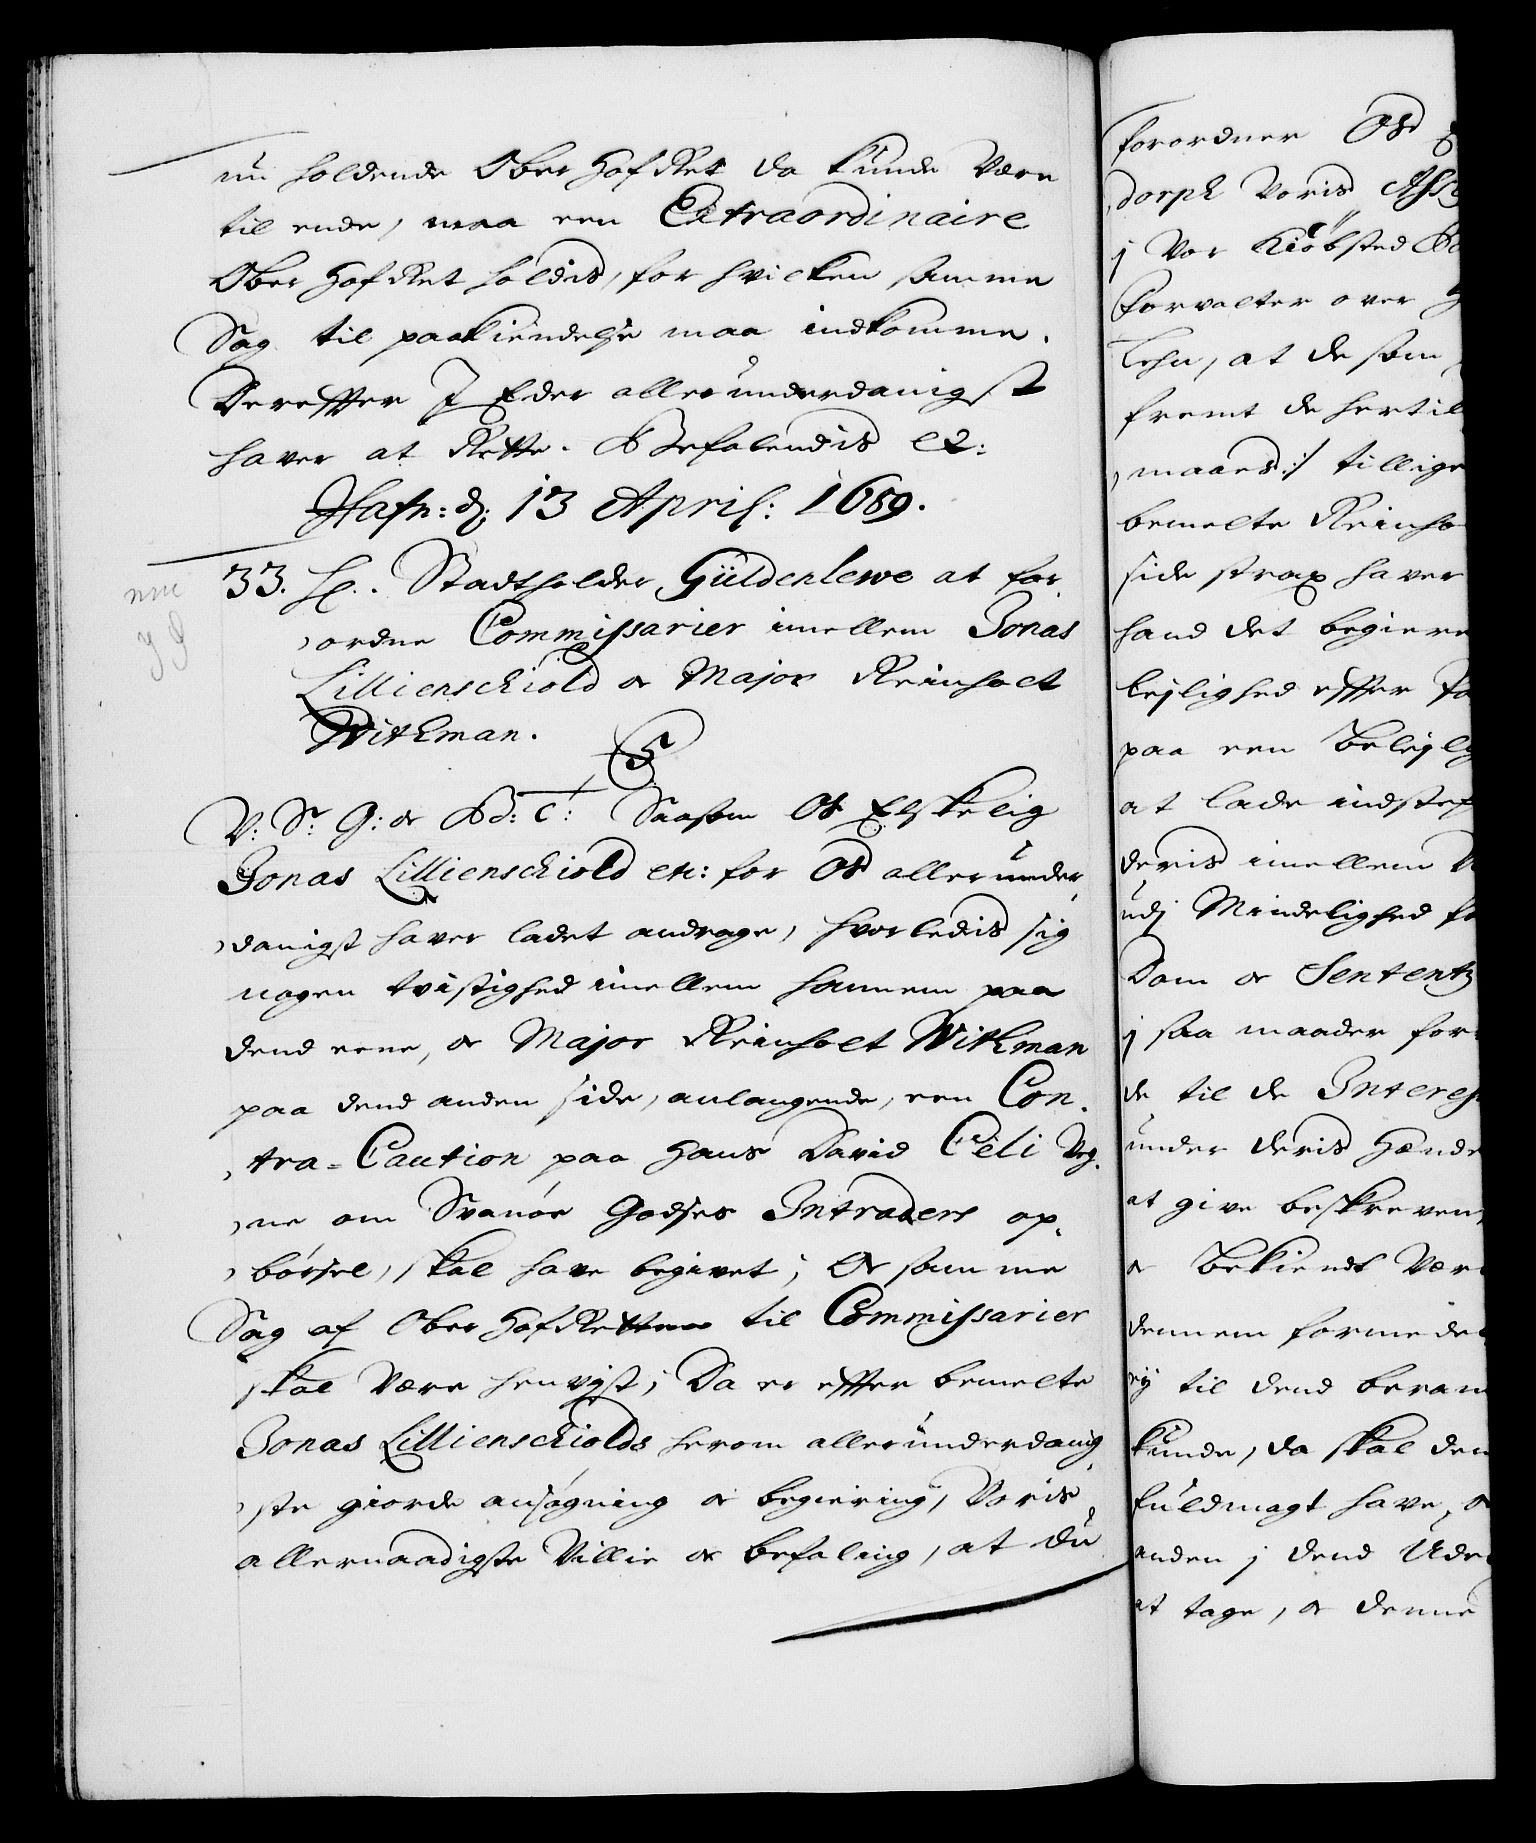 nu holdende Ober Hof Ret da kunde Være
til ende, maa een Extraordinaire
Ober Hof Ret holdis, for hvilken samme
Sag til paakiendelse maa indkomme.
Derefter I Eder allerunderdanigst
haver at Rette. Befalendis etc:
Hafn: d: 13 April: 1689.
33. Hr. Stadtholder Güldenlewe at for,
,ordne Commissarier imellem Jonas
Lillienschiold oc Major Reinholt
Withman.
C5
V: Sr. G: oc Bd: C: Saasom Os Elskelig
Jonas Lillienschiold etc: for Os allerunder,
,danigst haver ladet andrage, hvorledis sig
nogen tvistighed imellem hannem paa
dend eene, oc Major Reinholt Withman
paa dend anden side, anlangende, een Con,
,tra-Caution paa Hans David Celi Veg,
,ne om Svanøe Godses Intraders op,
,børsel, skal have begivet; Oc samme
Sag af Ober Hof Retten til Commissarier
skal Være henvist; Da er efter bemelte
Jonas Lillienschiolds herom allerunderdanig,
,ste giorde ansøgning oc begiering, Voris
allernaadigste Villie oc befaling, at du
forordner Os
dorph Voris
j Vor Kiøbsted
Forvalter over
Lehn, at de som
fremt de hertil
,maaes:/ tillige
bemelte Reinho
side strax haver
hand det begiere
leilighed efter
paa een beleilig
at lade indstef
deris imellem
udj Mindelighed
Dom oc Sententz
j saa maader for
de til de Interes
under deris Hænde
at give beskreven
oc bekiendt Være
dennem formedel
ey til dend beram
kunde, da skal den
fuldmagt have, oc
anden j dend Ude
at tage, oc denne